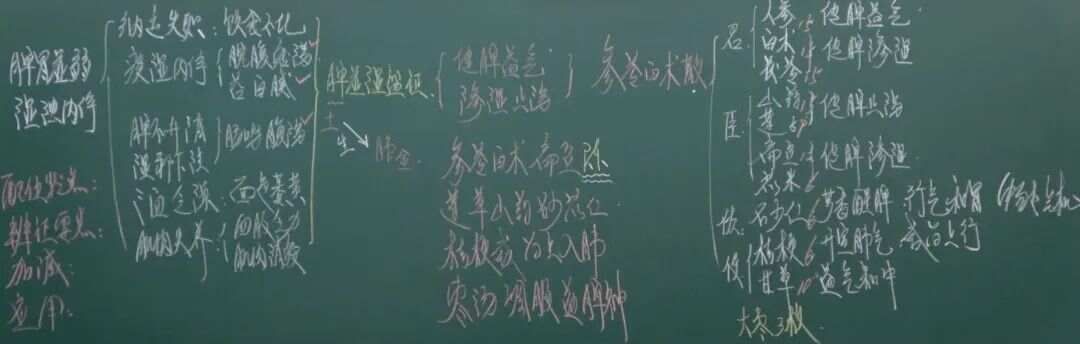 脾胃虚弱
湿浊内停
纳运失职：饮食不化
痰湿内停
脘腹痞满
苔白腻
脾不升清
湿邪下注
肠鸣腹泻
气血乏源：面色萎黄
肌肉失养：
四肢乏力
肌肉消瘦
配伍特点：
辨证要点：
加减：
应用：
脾虚湿盛证
土
生
肺金
健脾益气
渗湿止泻
参苓白术散
参苓白术扁豆陈
莲草山药砂苡仁
桔梗 为 上入肺
枣汤调服益脾神
君
人参 健脾益气
白术
茯苓
健脾渗湿
臣
山药
莲子
健脾止泻
扁豆
苡米
健脾渗湿
佐 砂仁 芳香醒脾 行气和胃
使
桔梗 开宣肺气 载药上行
甘草 益气和中
大枣3枚